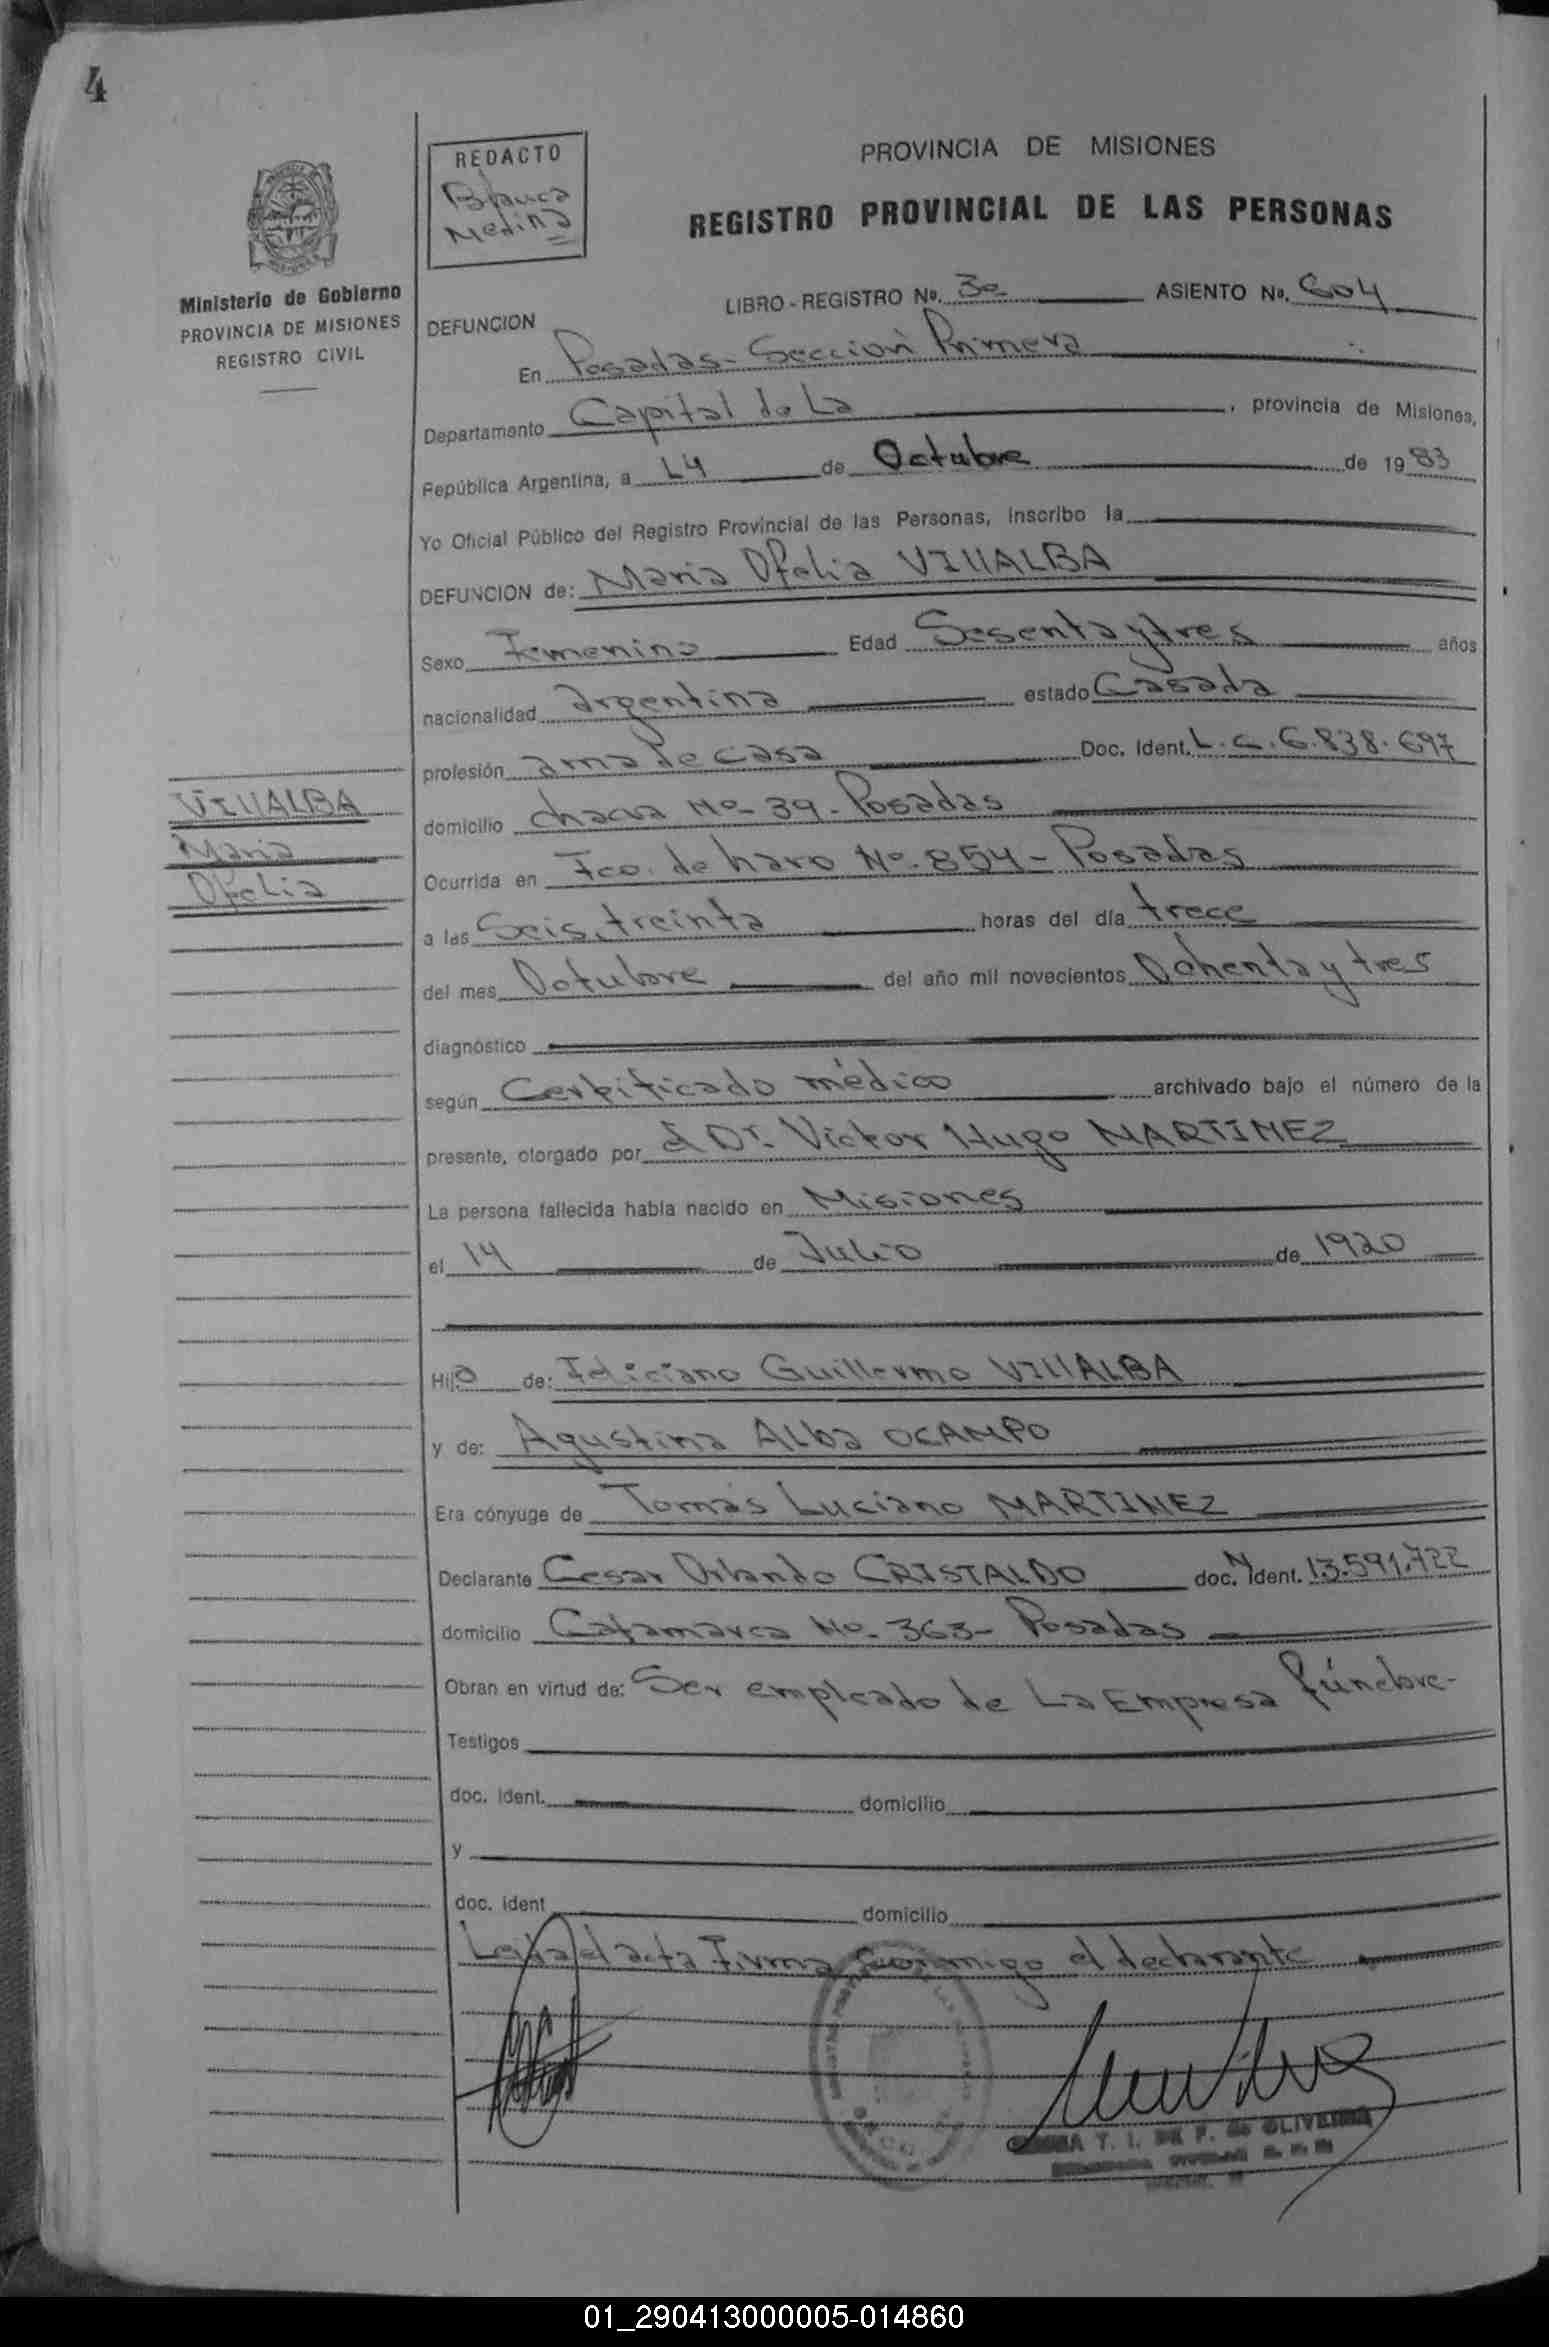 4
REDACTO
Blanca
Medina
PROVINCIA DE MISIONES
REGISTRO PROVINCIAL DE LAS PERSONAS
Ministerio de Gobierno
PROVINCIA DE MISIONES
REGISTRO CIVIL
LIBRO - REGISTRO No. 3º ASIENTO No. 604
DEFUNCION
En Posadas - Sección Primera
Departamento Capital de La, provincia de Misiones,
República Argentina, a 14 de Octubre de 1983
Yo Oficial Público del Registro Provincial de las Personas, inscribo la
DEFUNCION de: Maria Ofelia VILLALBA
Sexo Femenino Edad Sesenta y tres años
nacionalidad argentina estado Casada
profesión ama de casa Doc. Ident. L.C. 6.838.697
domicilio chacra Nº 39 - Posadas
VILLALBA
Maria
Ofelia
Ocurrida en Fco. de haro Nº 854 - Posadas
a las Seis, treinta horas del día trece
del mes Octubre del año mil novecientos Ochenta y tres
diagnóstico
según Certificado médico archivado bajo el número de la
presente, otorgado por el Dr. Victor Hugo MARTINEZ
La persona fallecida había nacido en Misiones
el 14 de Julio de 1920
Hija de: Feliciano Guillermo VILLALBA
y de: Agustina Alba OCAMPO
Era cónyuge de Tomás Luciano MARTINEZ
Declarante Cesar Orlando CRISTALDO doc. N. Ident. 13.591.722
domicilio Catamarca Nº 363 - Posadas
Obran en virtud de: Ser empleado de La Empresa fúnebre-
Testigos
doc. ident. domicilio
y
doc. ident domicilio
Leida el acta Firma conmigo el declarante
T. I. DE F. de OLIVEIRA
01_290413000005-014860